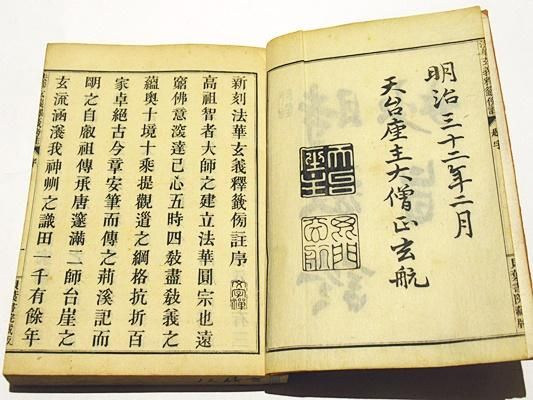 明治三十二年二月
天台座主大僧正玄航
新刻法華玄義釋籤俻註序
高祖智者大師之建立法華圓宗也遠
窮佛意深達己心五時四敎盡敎義之
蘊奥十境十乘提觀道之綱格抗折百
家卓絕古今章安筆而傳之荊溪記而
明之自叡祖傳承唐邃滿二師台崖之
玄流涵養我神州之識田一千有餘年